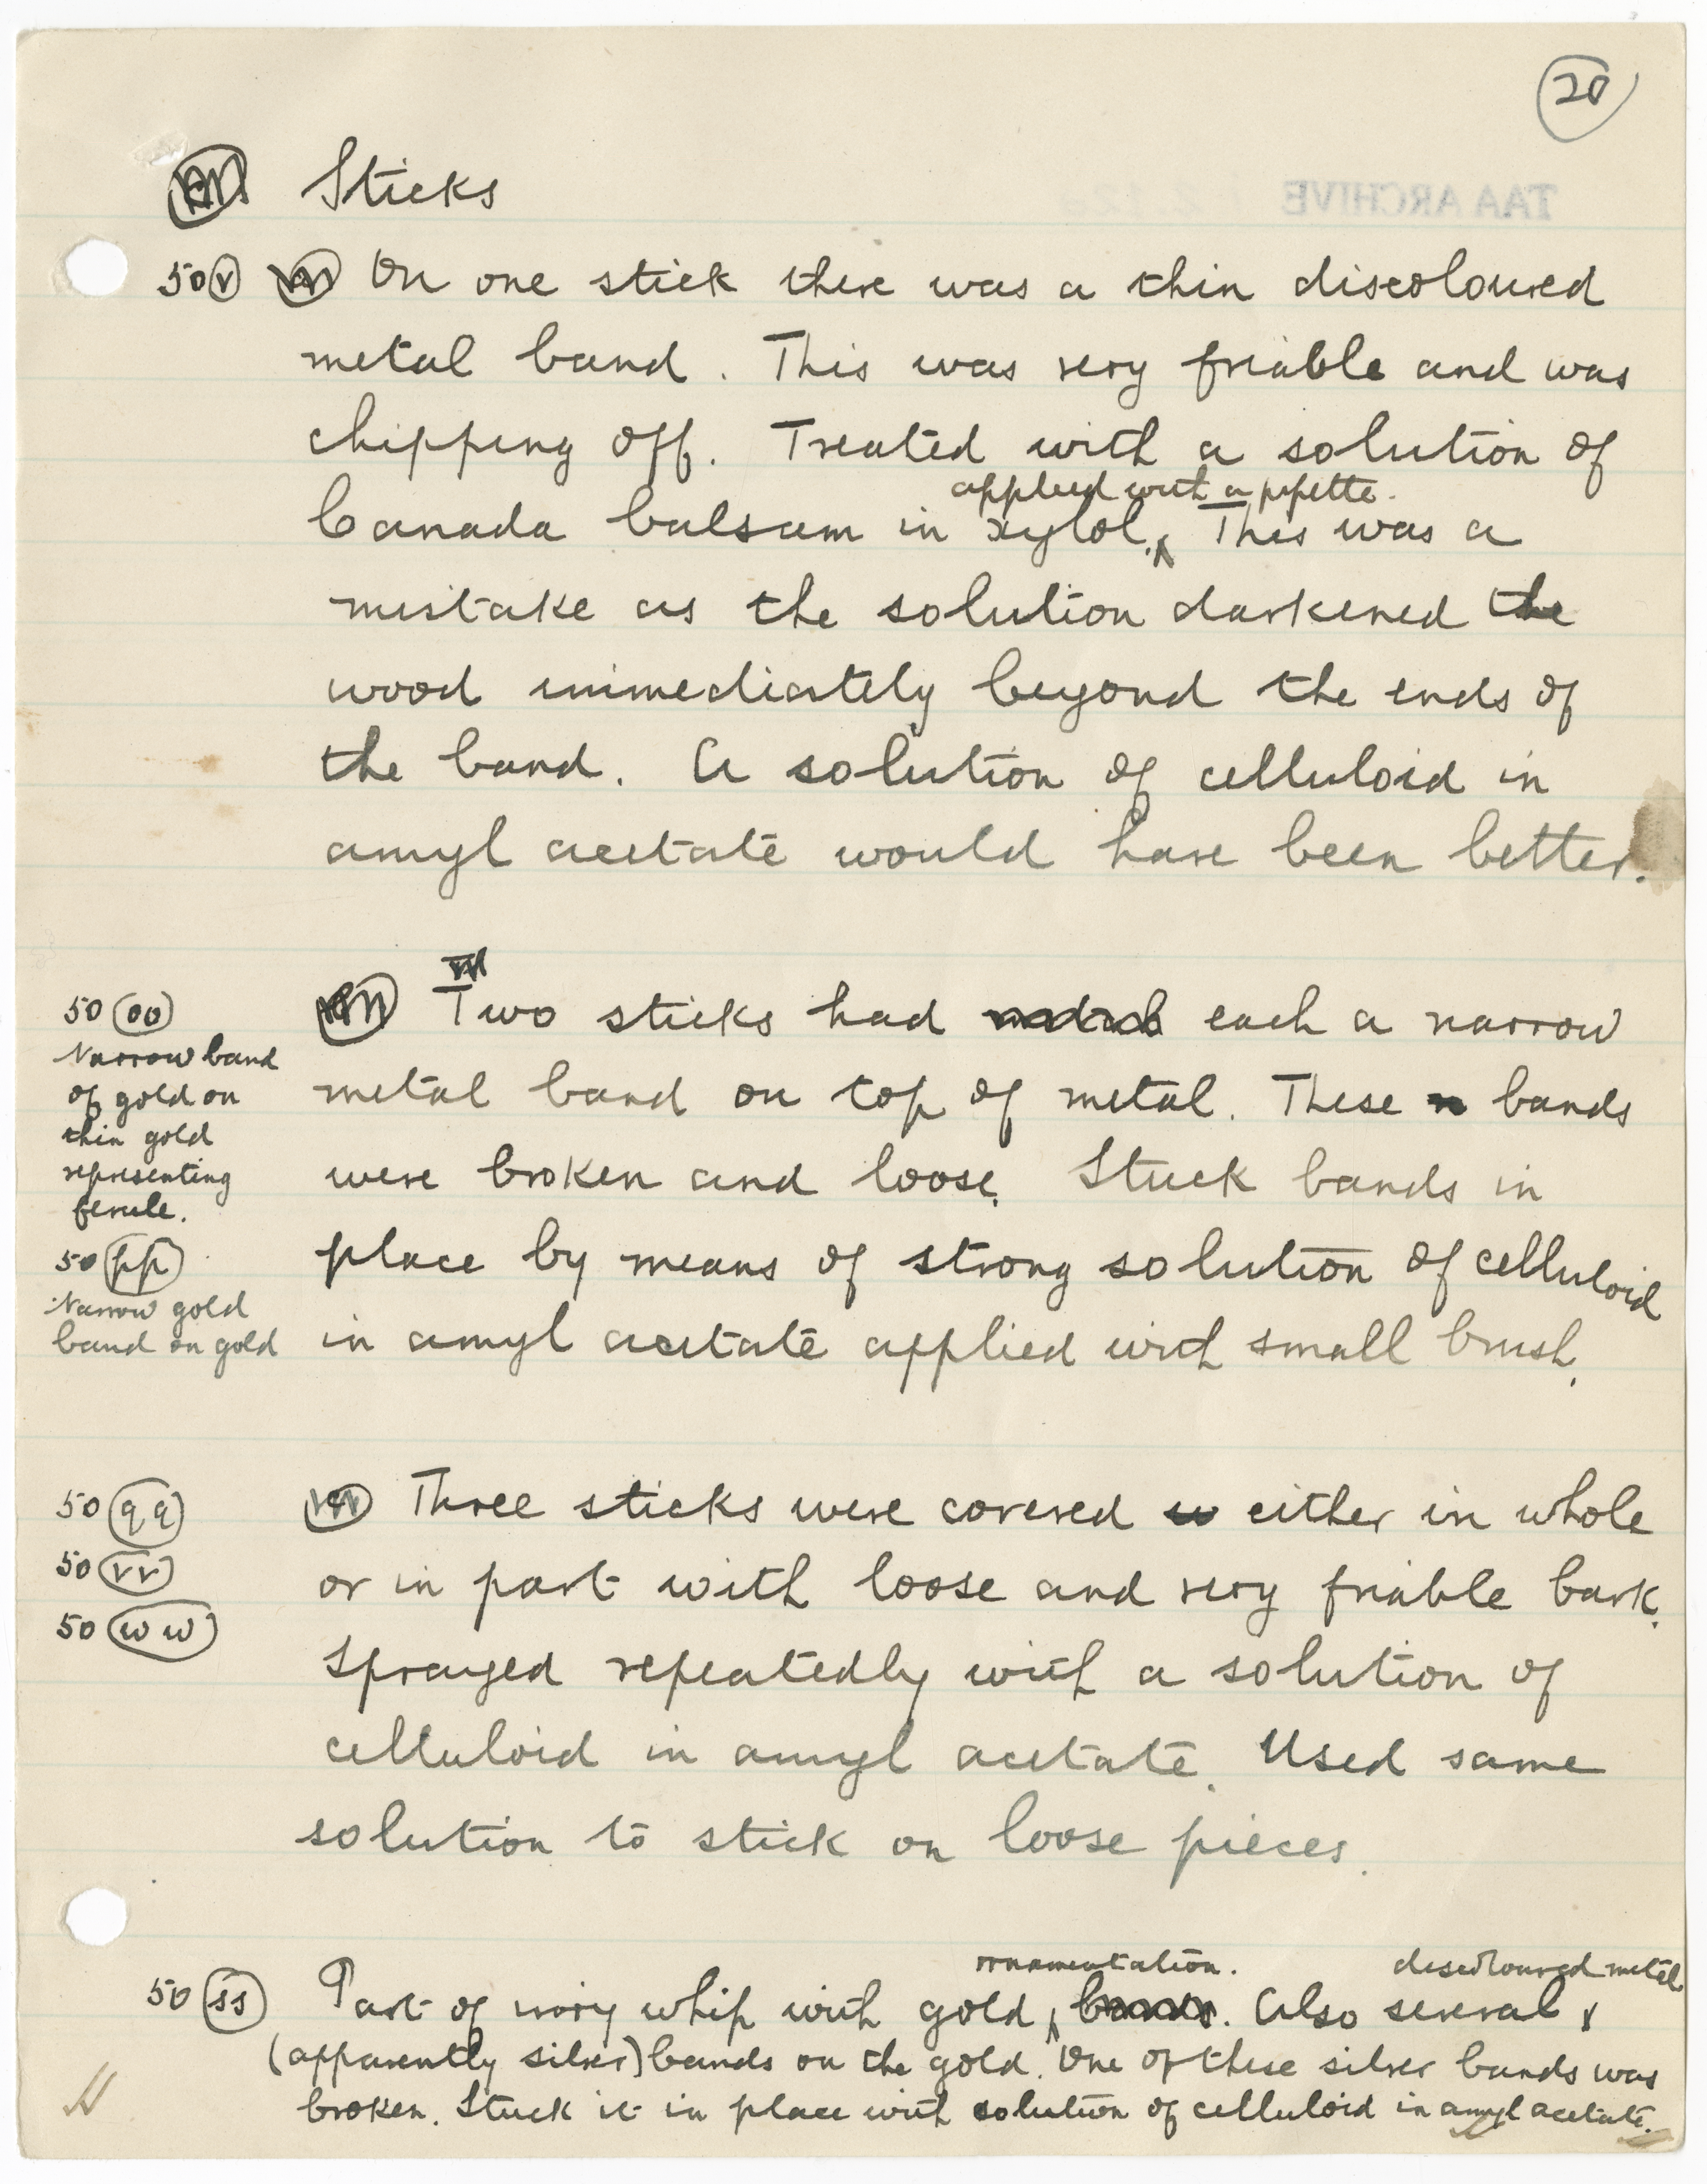 20
Sticks
TAA ARCHIVE
50 v On one stick there was a thin discoloured
metal band. This was very friable and was
chipping off. Treated with a solution of
applied with a pipette.
Canada balsam in xylol. This was a
mistake as the solution darkened the
wood immediately beyond the ends of
the band. A solution of celluloid in
amyl acetate would have been better.
50 oo
Narrow band
of gold on
thin gold
representing
ferule.
50 pp
Narrow gold
band on gold
Two sticks had each a narrow
metal band on top of metal. These bands
were broken and loose. Stuck bands in
place by means of strong solution of celluloid
in amyl acetate applied with small brush.
50 qq
50 vv
50 ww
Three sticks were covered either in whole
or in part with loose and very friable bark.
Sprayed repeatedly with a solution of
celluloid in amyl acetate. Used same
solution to stick on loose pieces.
ornamentation. discoloured metal
50 ss Part of ivory whip with gold . Also several
(apparently silver) bands on the gold. One of these silver bands was
broken. Stuck it in place with solution of celluloid in amyl acetate.